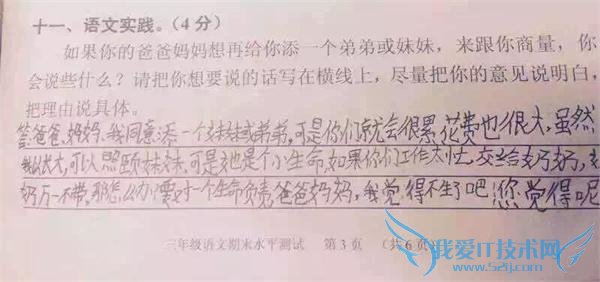 十一、语文实践。(4分)
如果你的爸爸妈妈想再给你添一个弟弟或妹妹，来跟你商量，你
会说些什么？请把你想要说的话写在横线上，尽量把你的意见说明白，
把理由说具体。
答:爸爸,妈妈,我同意添一个妹妹或弟弟,可是你们就会很累,花费也很大,虽然
我长大,可以照顾妹妹,可是她是个小生命,如果你们工作太忙,交给奶奶,
奶奶万一不带,那怎么办?要对一个生命负责,爸爸妈妈,我觉得不生了吧!您觉得呢
三年级语文期末水平测试 第3页 (共6页)
我爱IT技术网